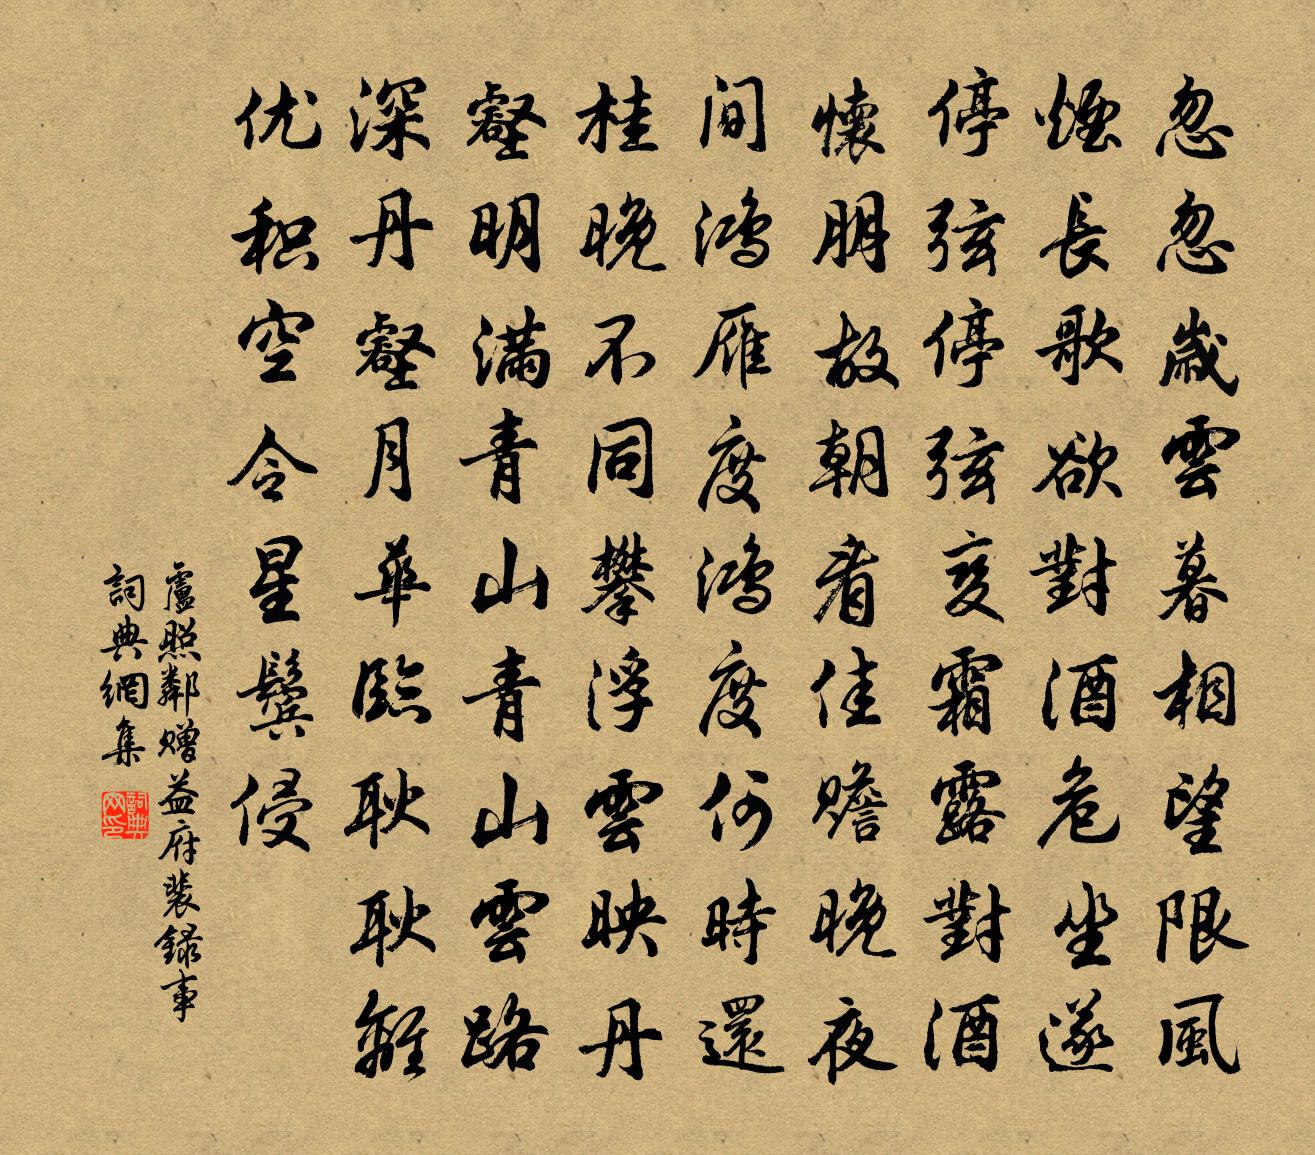 忽忽歲雲暮相望限風
煙長歌欲對酒危坐遂
停弦停弦変霜露對酒
懷朋故朝看佳贍晚夜
間鴻雁度鴻度何時還
桂晚不同攀浮雲映丹
壑明滿青山青山雲路
深丹壑月華臨耿耿離
优积空令星鬢侵
盧照鄰贈益府裴録事
詞典網集
詞典网印